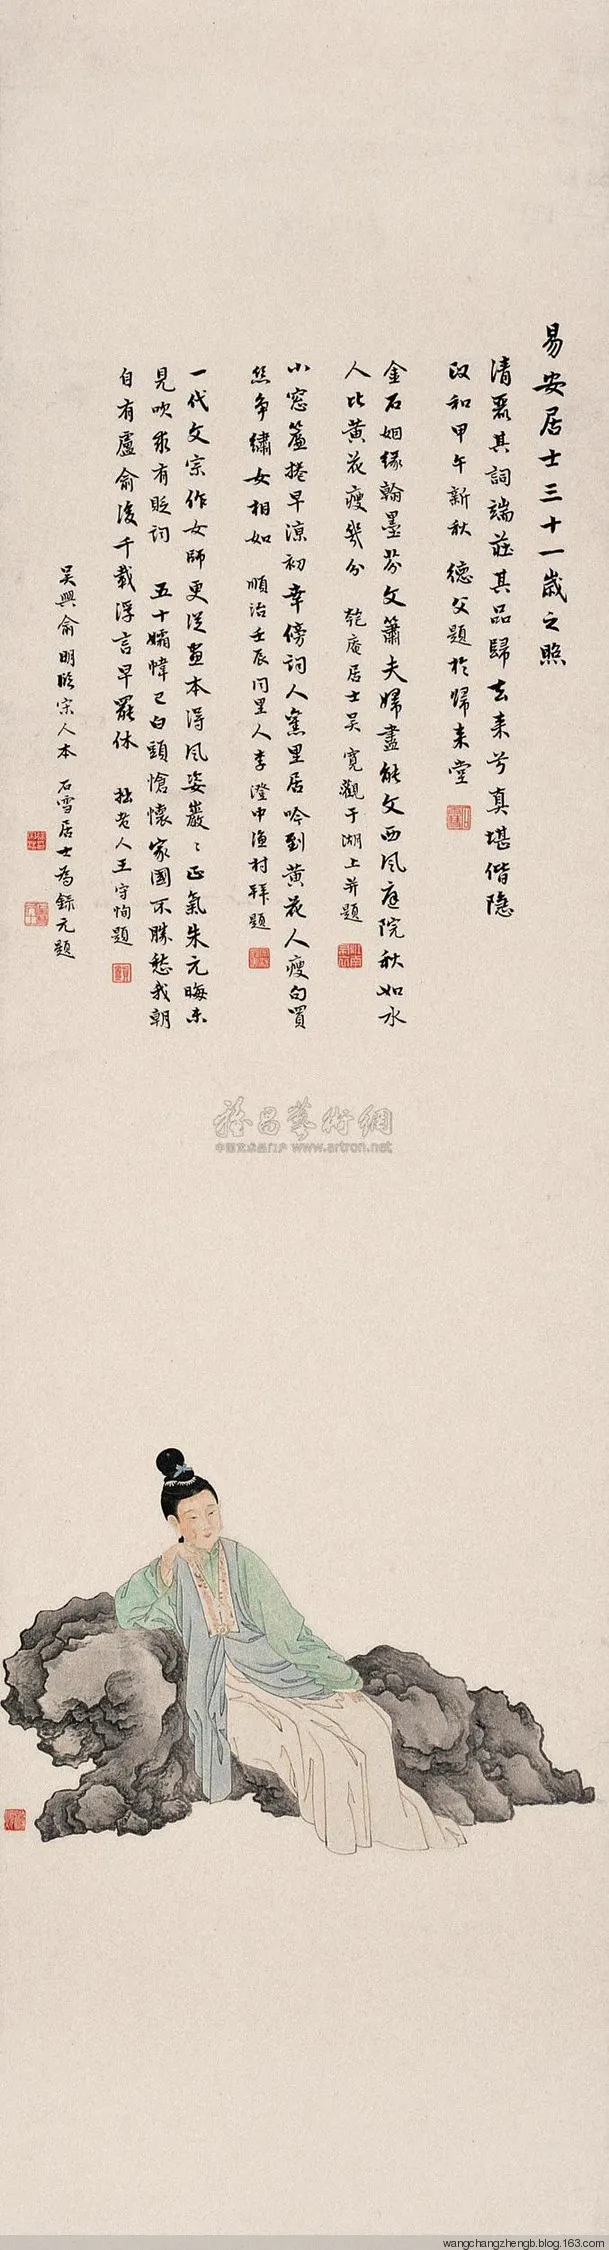 易安居士三十一歲之照
清麗其詞端莊其品歸去来兮真堪偕隱
政和甲午新秋 德父題於歸来堂
金石姻緣翰墨芬文簫夫婦盡能文西風庭院秋如水
人比黃花瘦幾分 匏庵居士吴寬觀于湖上并題
小窓簾捲早涼初幸傍詞人舊里居吟到黃花人瘦句買
絲争繡女相如 順治壬辰同里人李澄中漁村拜題
一代文宗作女師更逆画本得風姿巖〻正氣朱元晦未
見吹求有貶詞 五十孀幃已白頭愴懷家國不勝愁我朝
自有盧俞後千載浮言早罷休 拙老人王守恂題
吴興俞明臨宋人本 石雪居士為錄元題
雅昌藝術網
中国艺术品门户 www.artron.net
wangchangzhengb.blog.163.com